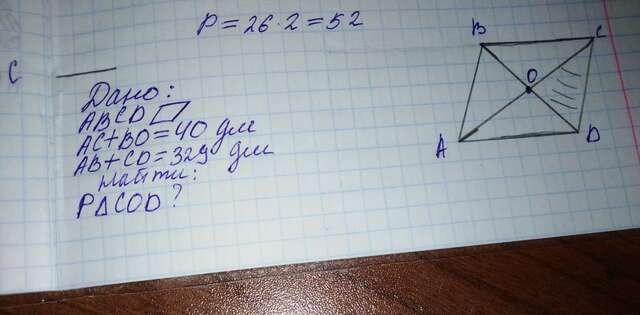 P = 26 · 2 = 52
C
Дано:
ABCD ▱
AC + BO = 40 дм
AB + CD = 329 дм
Найти:
P△COD ?
B
C
O
A
D